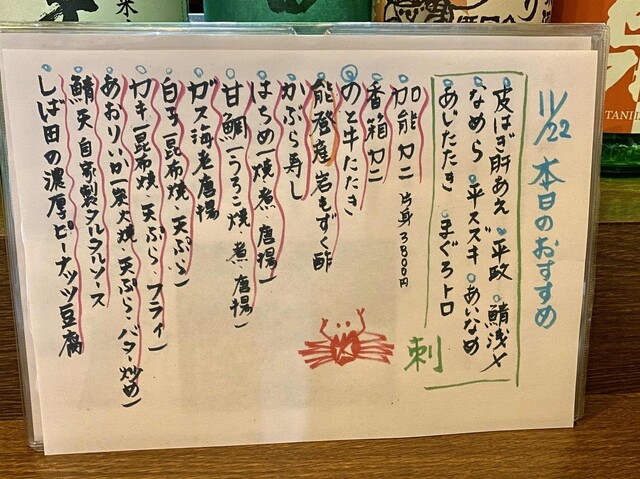 11/22 本日のおすすめ
皮はぎ肝あえ 平政 鯖浅〆
なめら 平スズキ あいなめ
あじたたき まぐろトロ
刺
加能カニ 片身3800円
香箱カニ
のと牛たたき
能登産岩もずく酢
かぶら寿し
はちめ(焼・煮・唐揚)
甘鯛(うろこ焼・煮・唐揚)
ガス海老唐揚
白子(昆布焼・天ぷら)
カキ(昆布焼・天ぷら・フライ)
あおりいか(炭火焼・天ぷら・バター炒め)
鯖天自家製タルタルソース
しば田の濃厚ピーナッツ豆腐
TANI